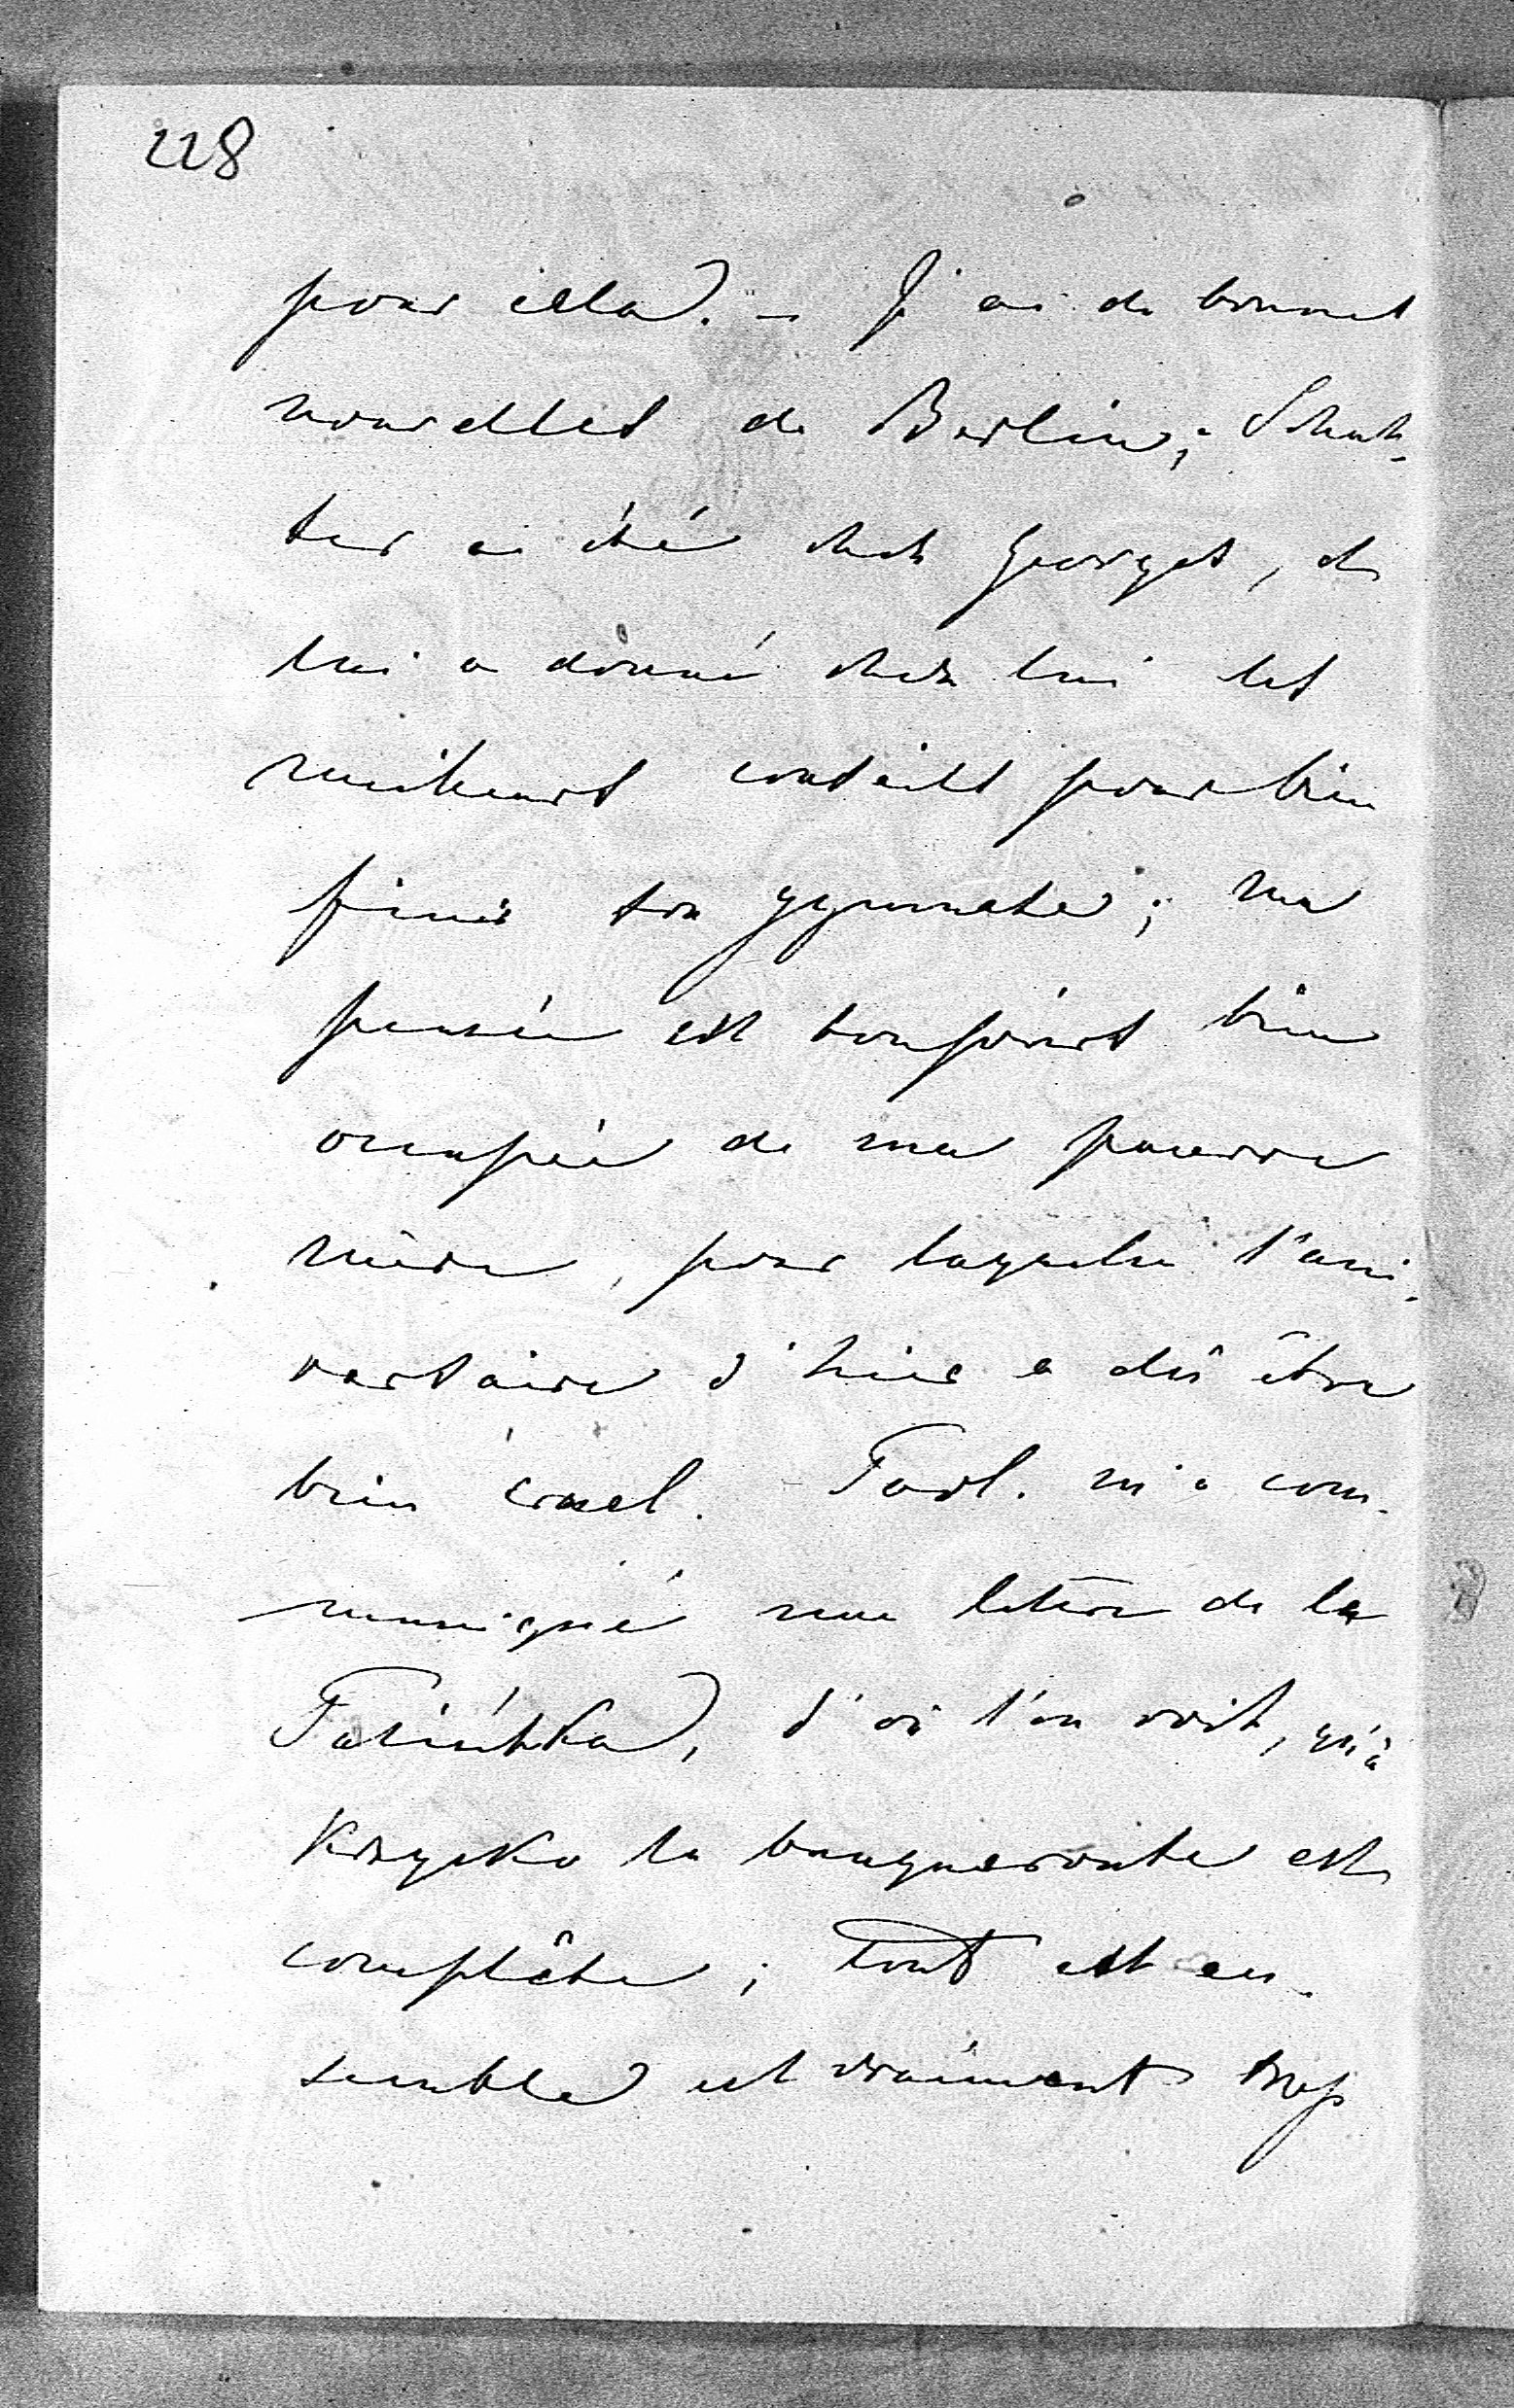 228
pour cela. – J'ai de bonnes
nouvelles de Berlin; Schul-
ter a été chez Georges, et
lui a donné chez lui les
meilleurs conseils pour bien
finir son gymnase; ma
pensée est toujours bien
occupée de ma pauvre
mère, pour laquelle l'ani-
versaire d'hier a dû être
bien cruel. m'a com-
muniqué une lettre de la
d'où l'on voit, qu'à
la banqueroute est
complète; tout est en-
semble est vraiment trop